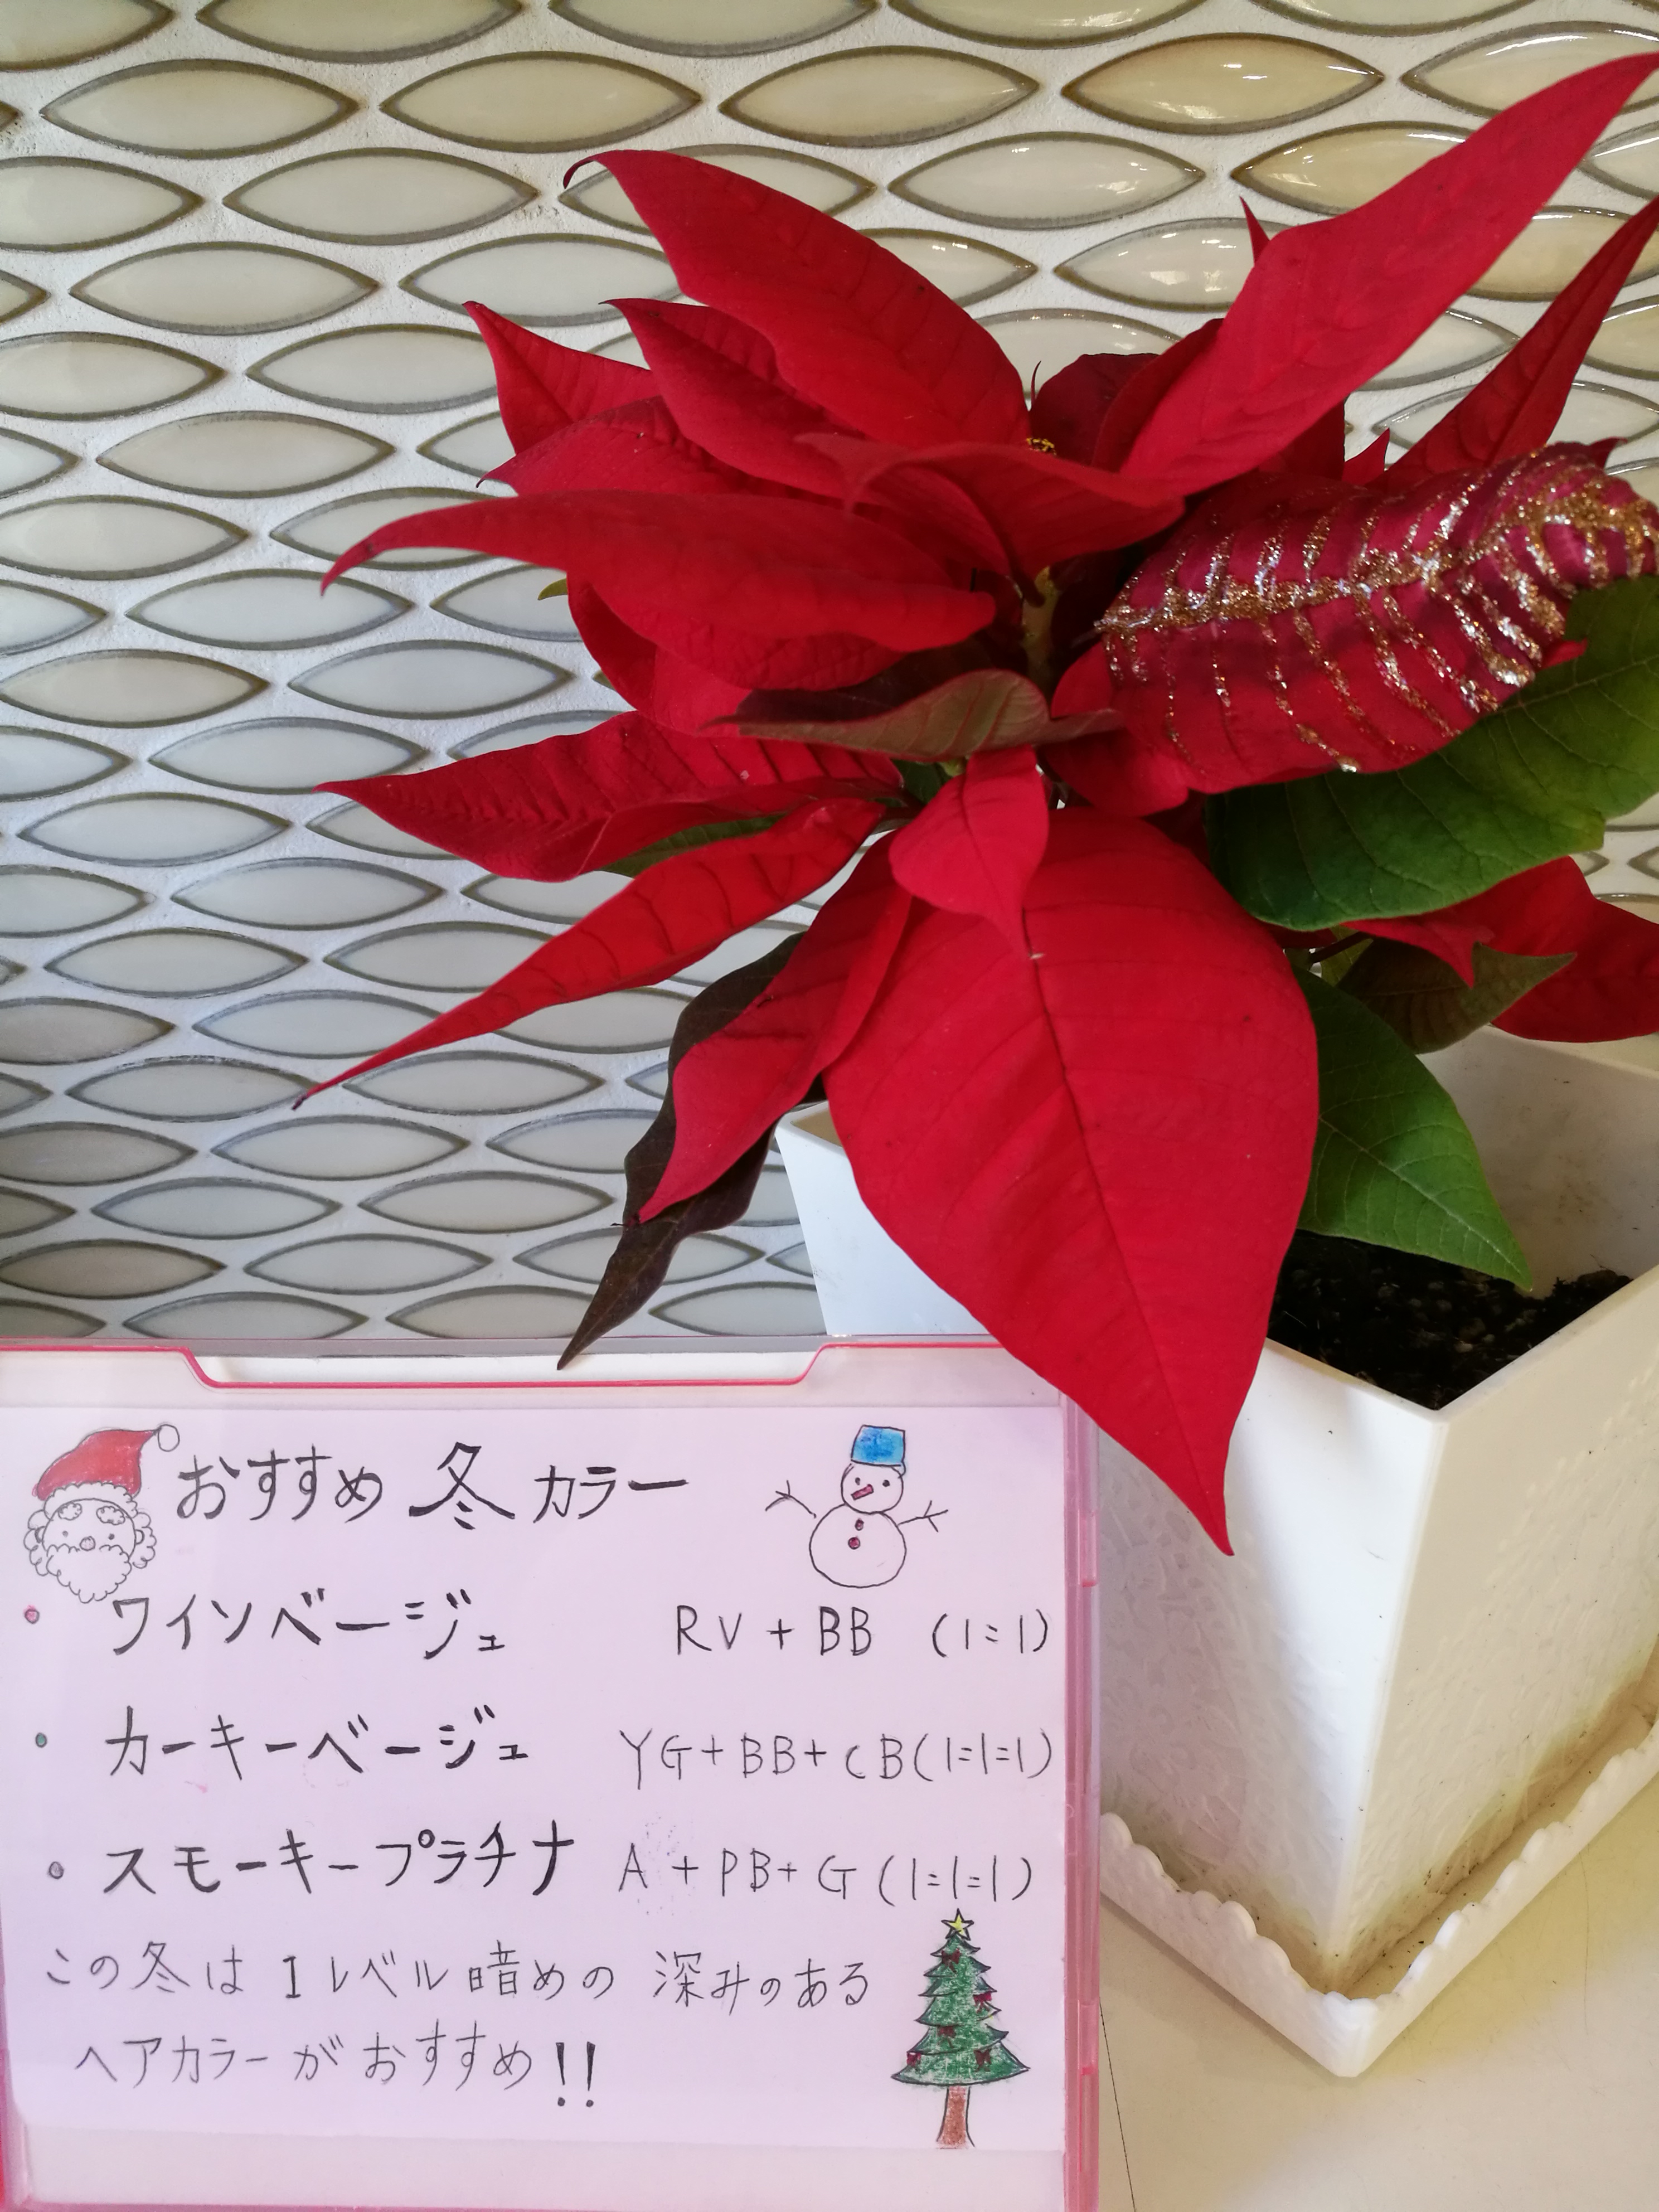 おすすめ 冬 カラー
・ワインベージュ RV + BB (1:1)
・カーキーベージュ YG+BB+CB(1:1:1)
・スモーキープラチナ A + PB+G (1:1:1)
この冬は 1レベル暗めの 深みのある
ヘアカラーがおすすめ!!